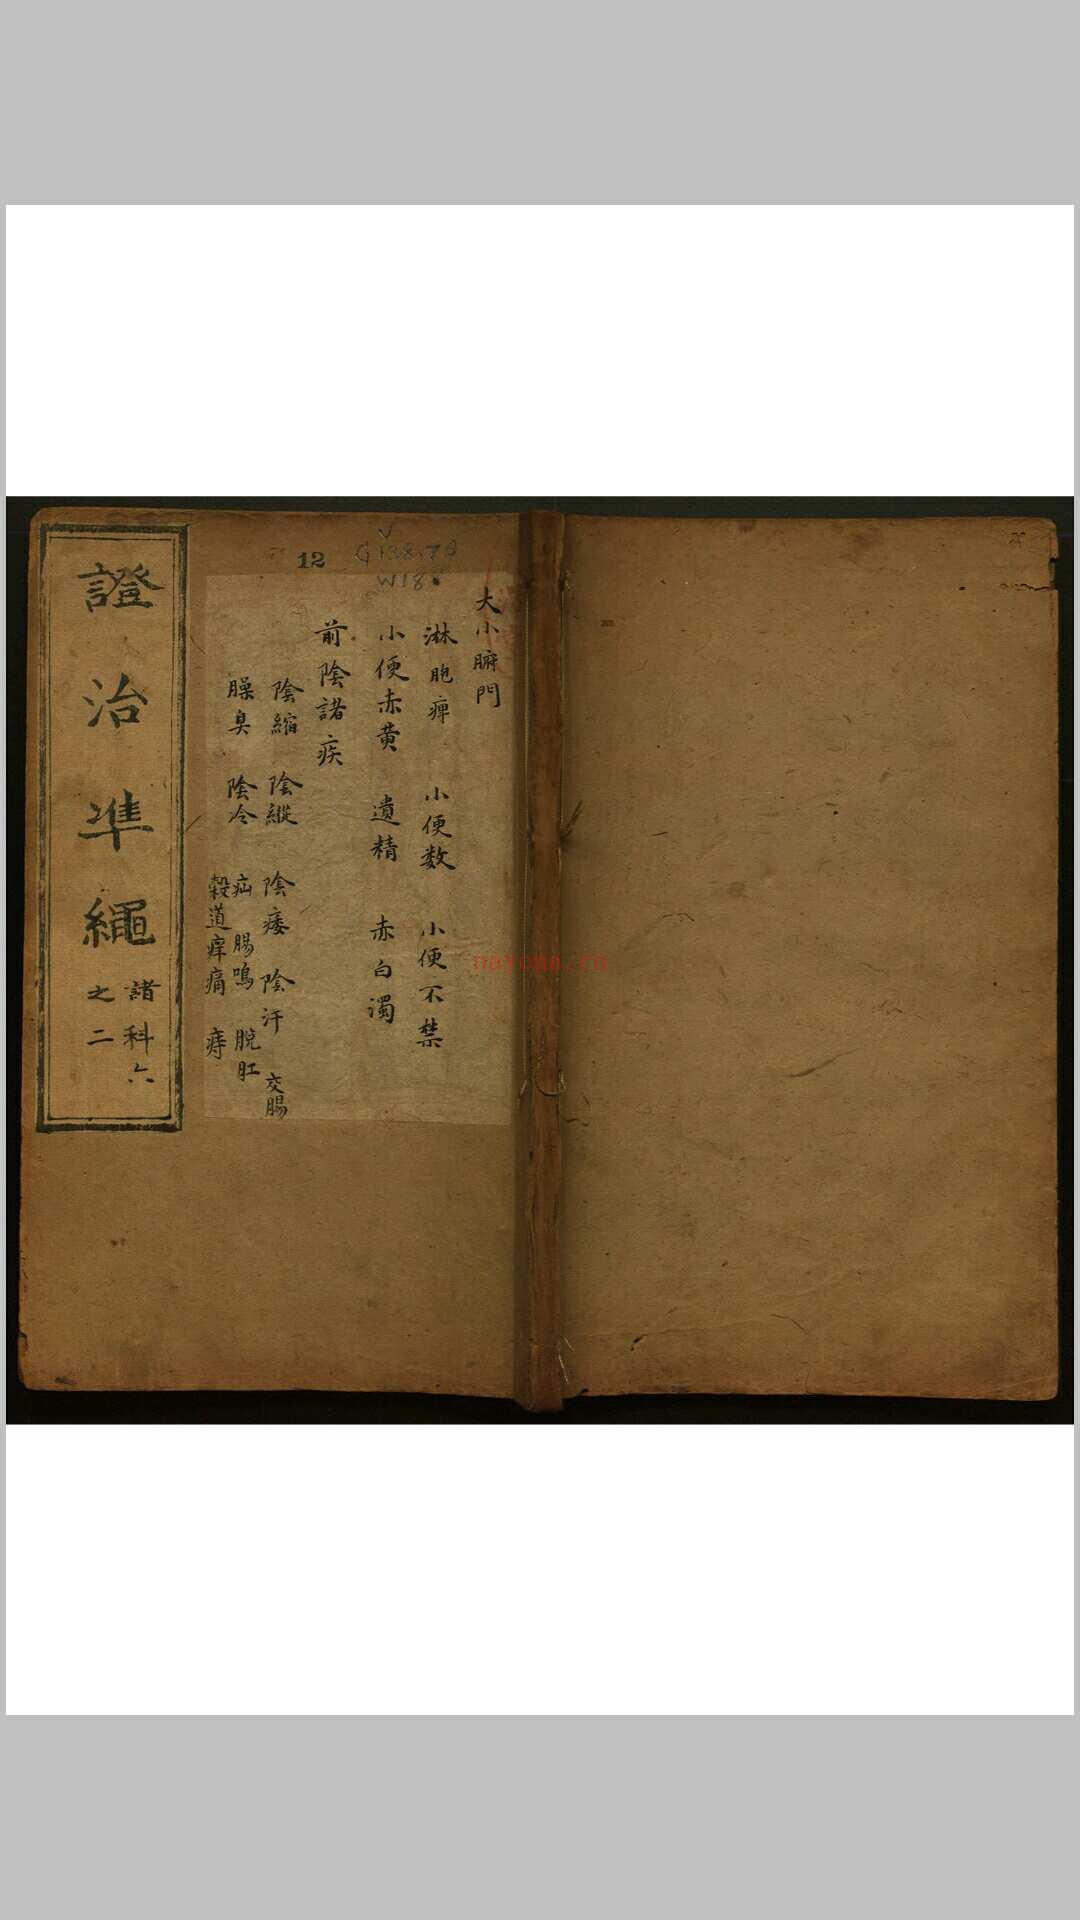 12
G138.78
W18
大小腑門
淋 胞痺 小便数 小便不禁
小便赤黄 遺精 赤白濁
前陰諸疾
陰縮 陰縱 陰痿 陰汗 交腸
臊臭 陰冷 疝 腸鳴 脫肛
穀道痒痛 痔
證治準繩
諸科六
之二
nayona.cn